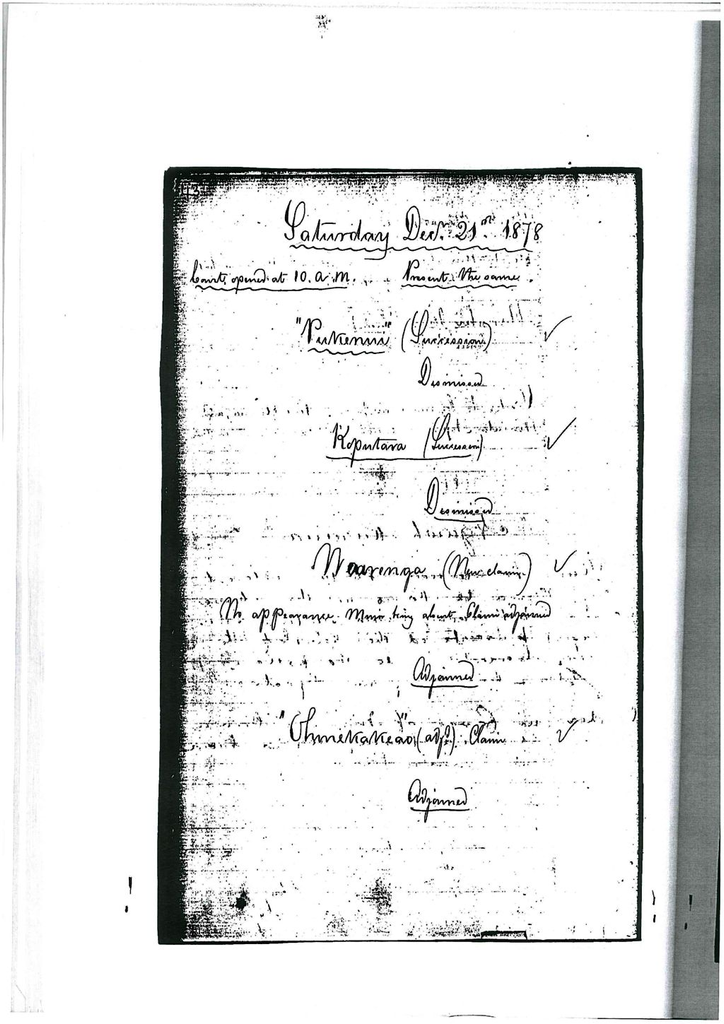 Saturday Decr. 21st. 1878
Court opened at 10. a.m. Present the same.
"Pukenui" (Succession)
Dismissed
Koputara (Succession)
Dismissed
(New claim)
No appearance. being absent. Claim adjourned
Adjourned
(adjd.) Claim
Adjourned